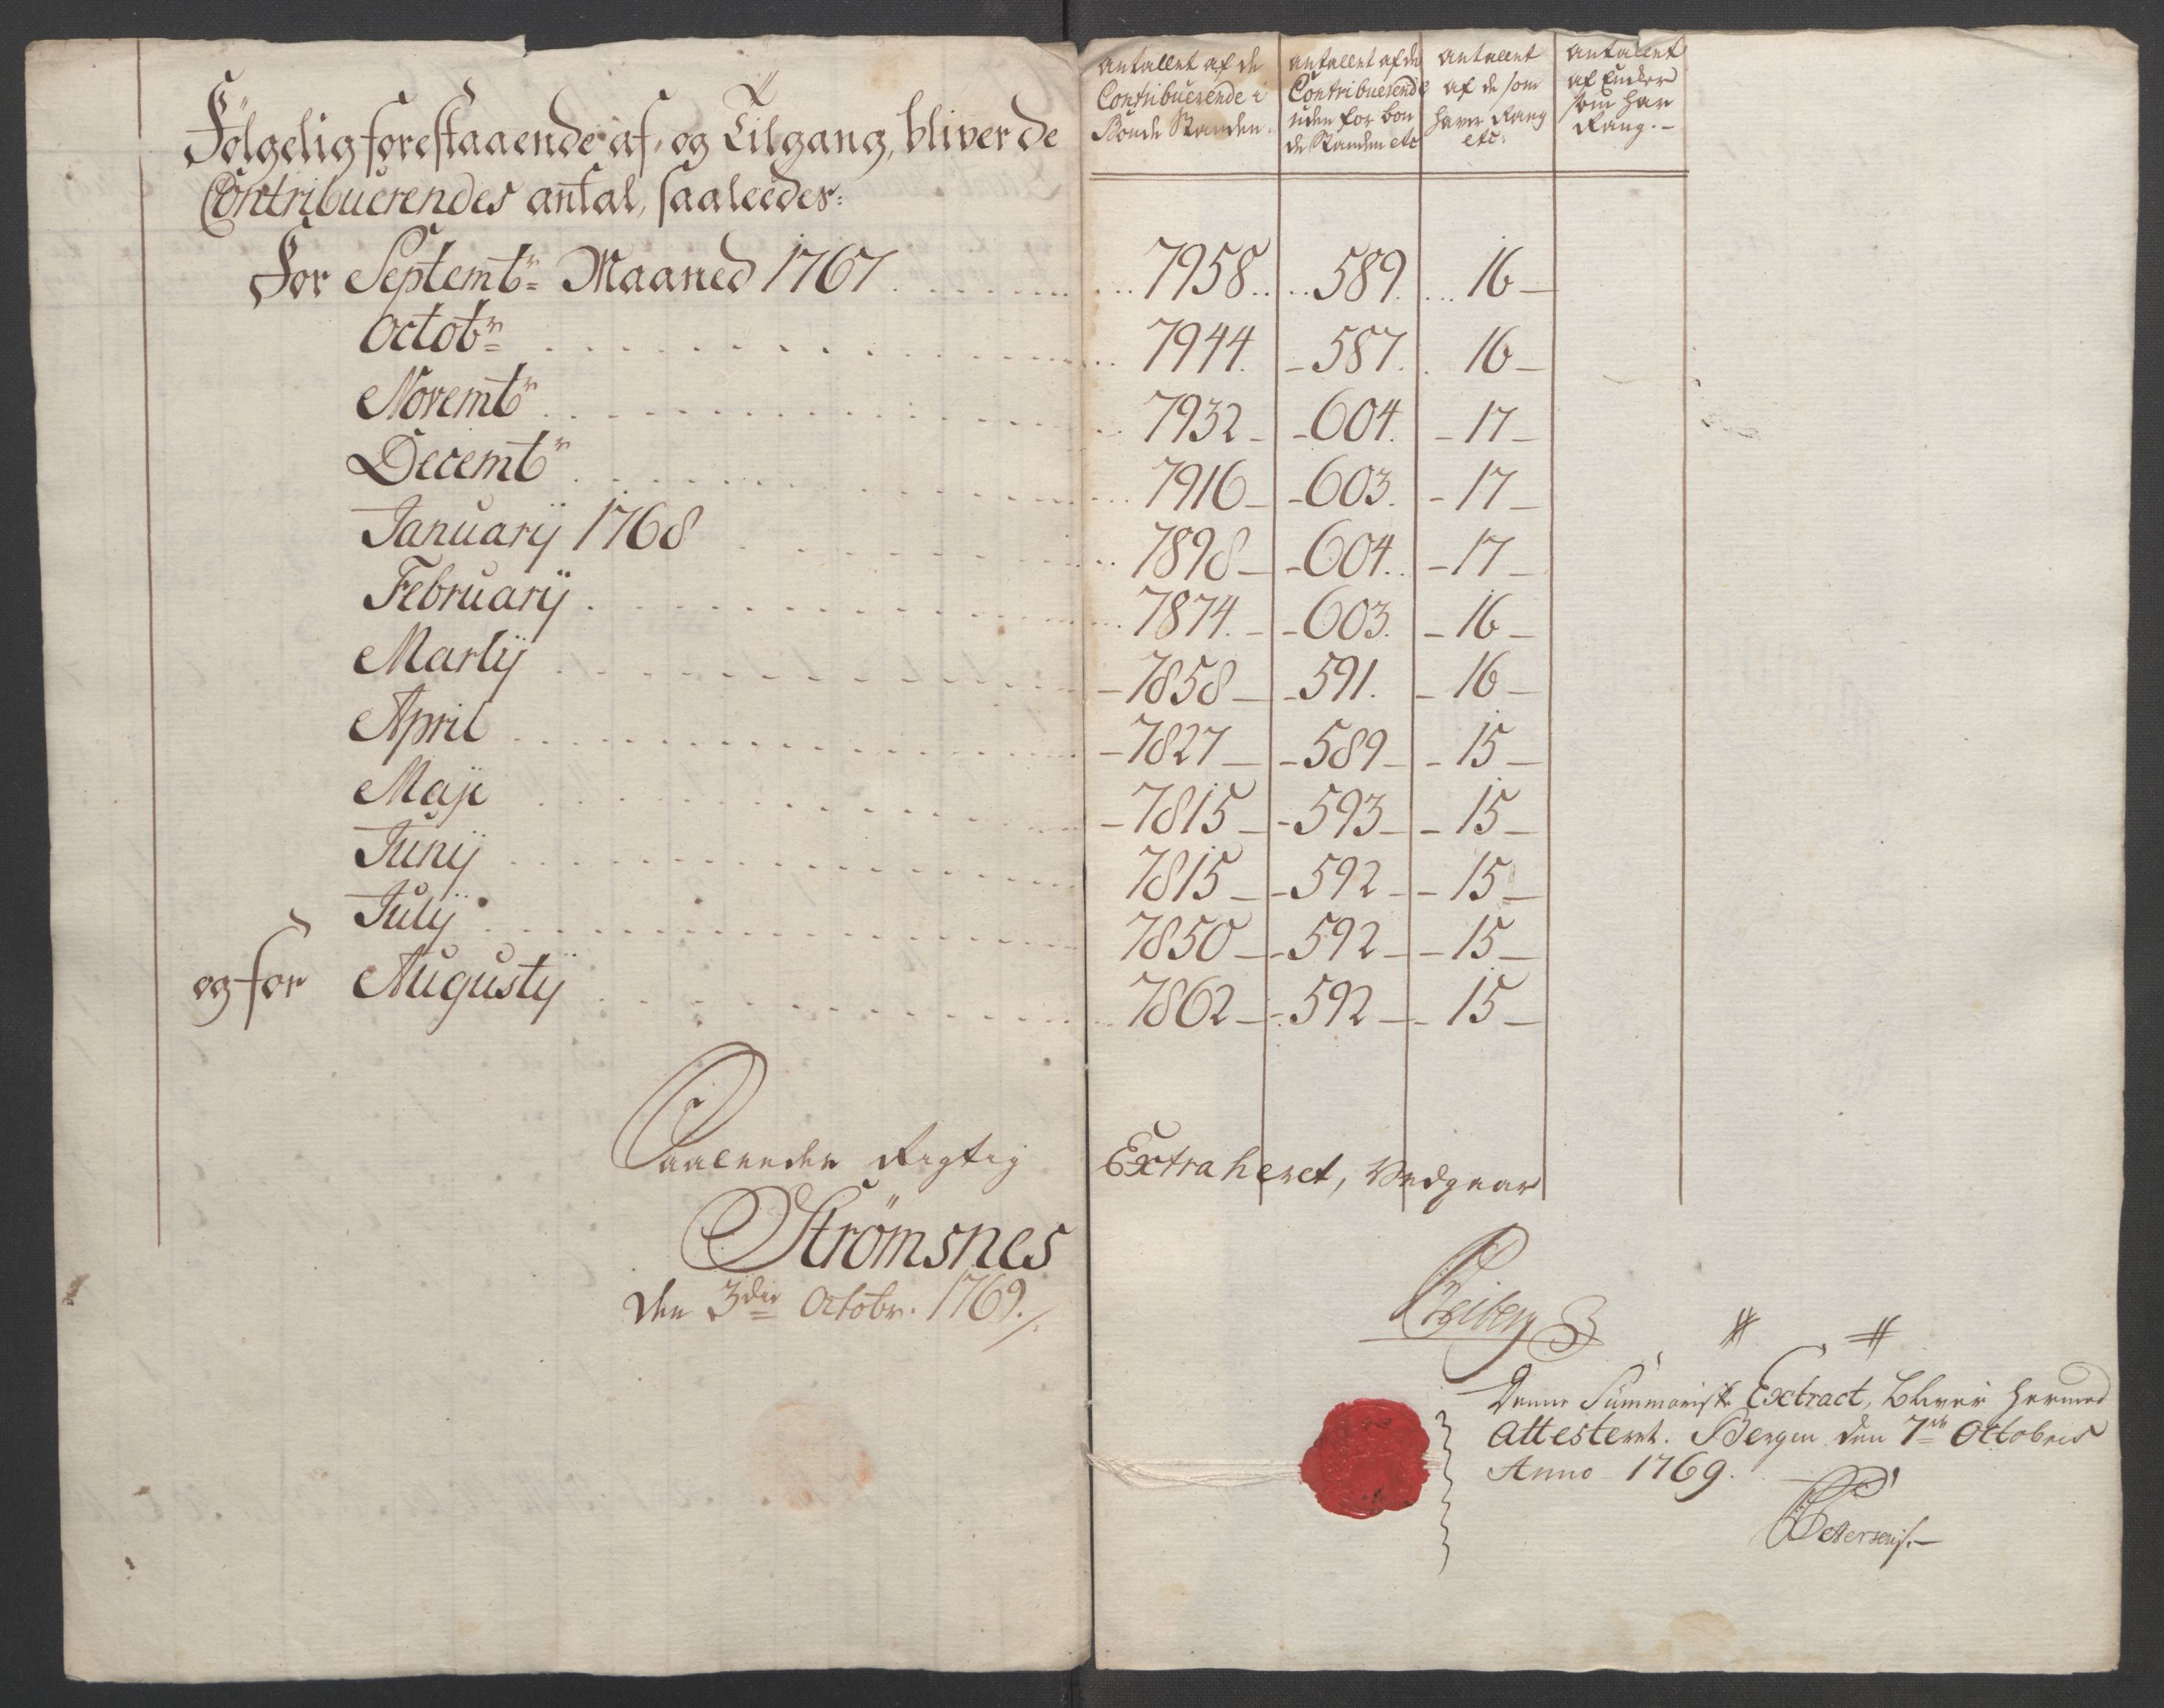 Antallet af de
Contribuerende i
Bonde Standen.
Antallet af de
Contribuerende
uden for bon
de Standen etc
Antallet
af de som
haver Rang
etc:
Antallet
af Encker
som har
Rang.
Følgelig forestaaende af- og Tilgang, bliver de
Contribuerendes antal, saaledes:
For Septembr: Maaned 1767 . . . 7958. 589. 16
Octobr: . . . 7944. 587. 16
Novembr . . . 7932 604. 17
Decembr . . . 7916 603. 17
Januarij 1768 . . . 7898 604. 17
Februarij . . . 7874. 603. 16
Martij . . . 7858 591. 16
April . . . 7827 589 15
Maji . . . 7815 593 15
Junij . . . 7815 592 15
Julij . . . 7850 592 15
og for Augustij . . . 7862 592 15
Saaleedes Rigtig Extraheret, Vedgaar
Strømsnes
den 3die Octobr. 1769.
Denne Summarisk Extract, bliver hermed
Attesteret. Bergen den 7de Octobris
Anno 1769.